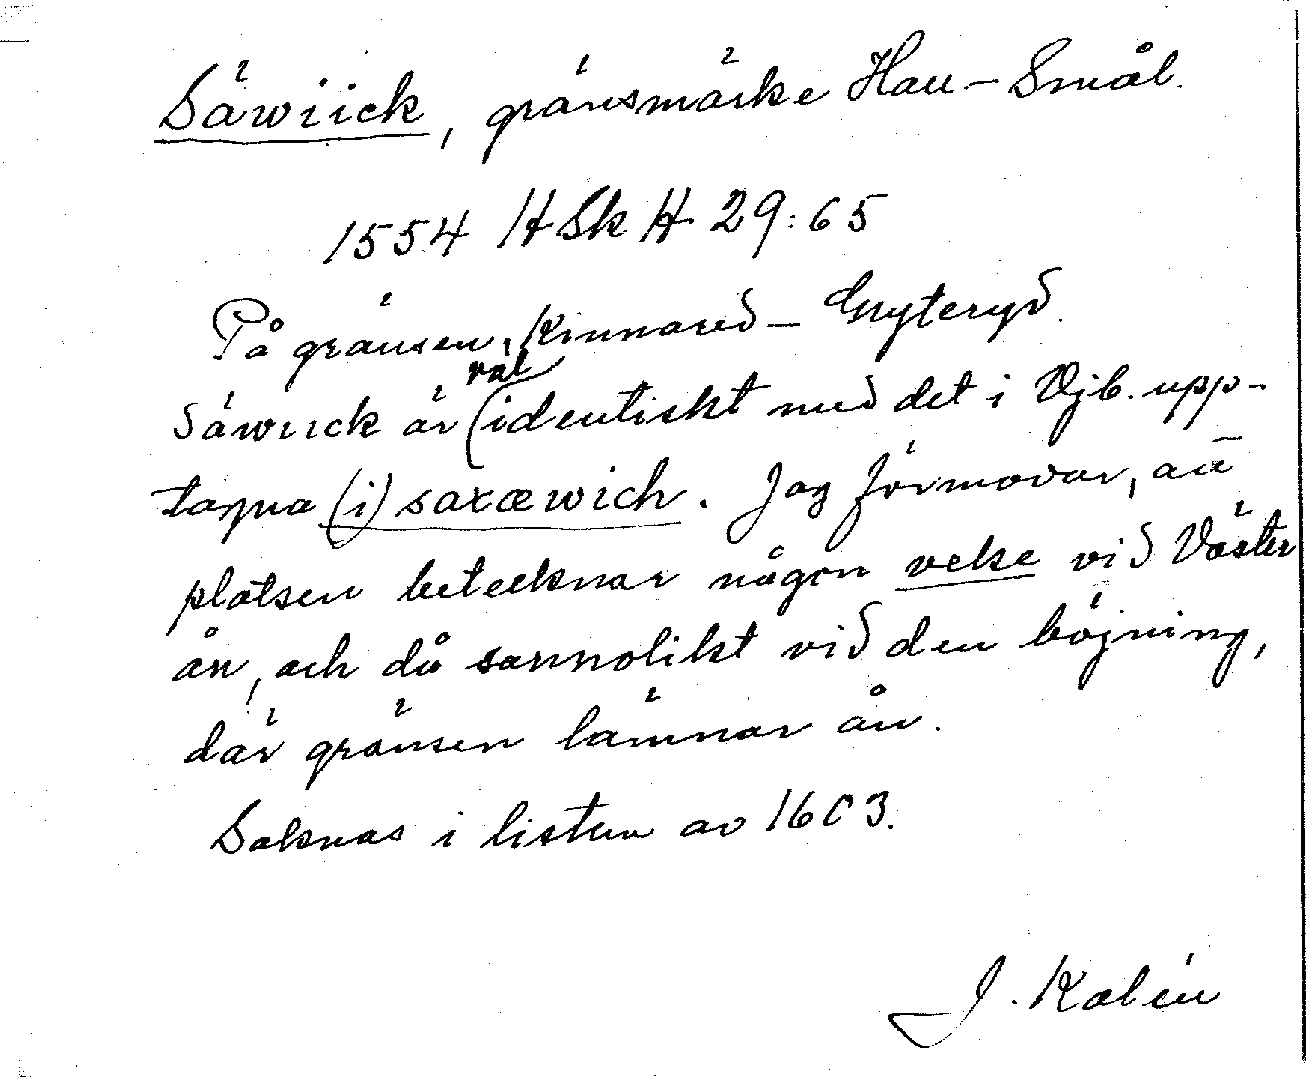 Säwiick, gränsmärke Hall-Smål.
1554 HSkH 29:65
På gränsen, Kinnared – Gryteryd.
Säwiick är väl identiskt med det i Vjb. upp-
tagna (i) saxæwich. Jag förmodar, att
platsen betecknar någon veke vid Väster
ån, och då sannolikt vid den böjning,
där gränsen lämnar ån.
Saknas i listan av 1603.
J. Kalén